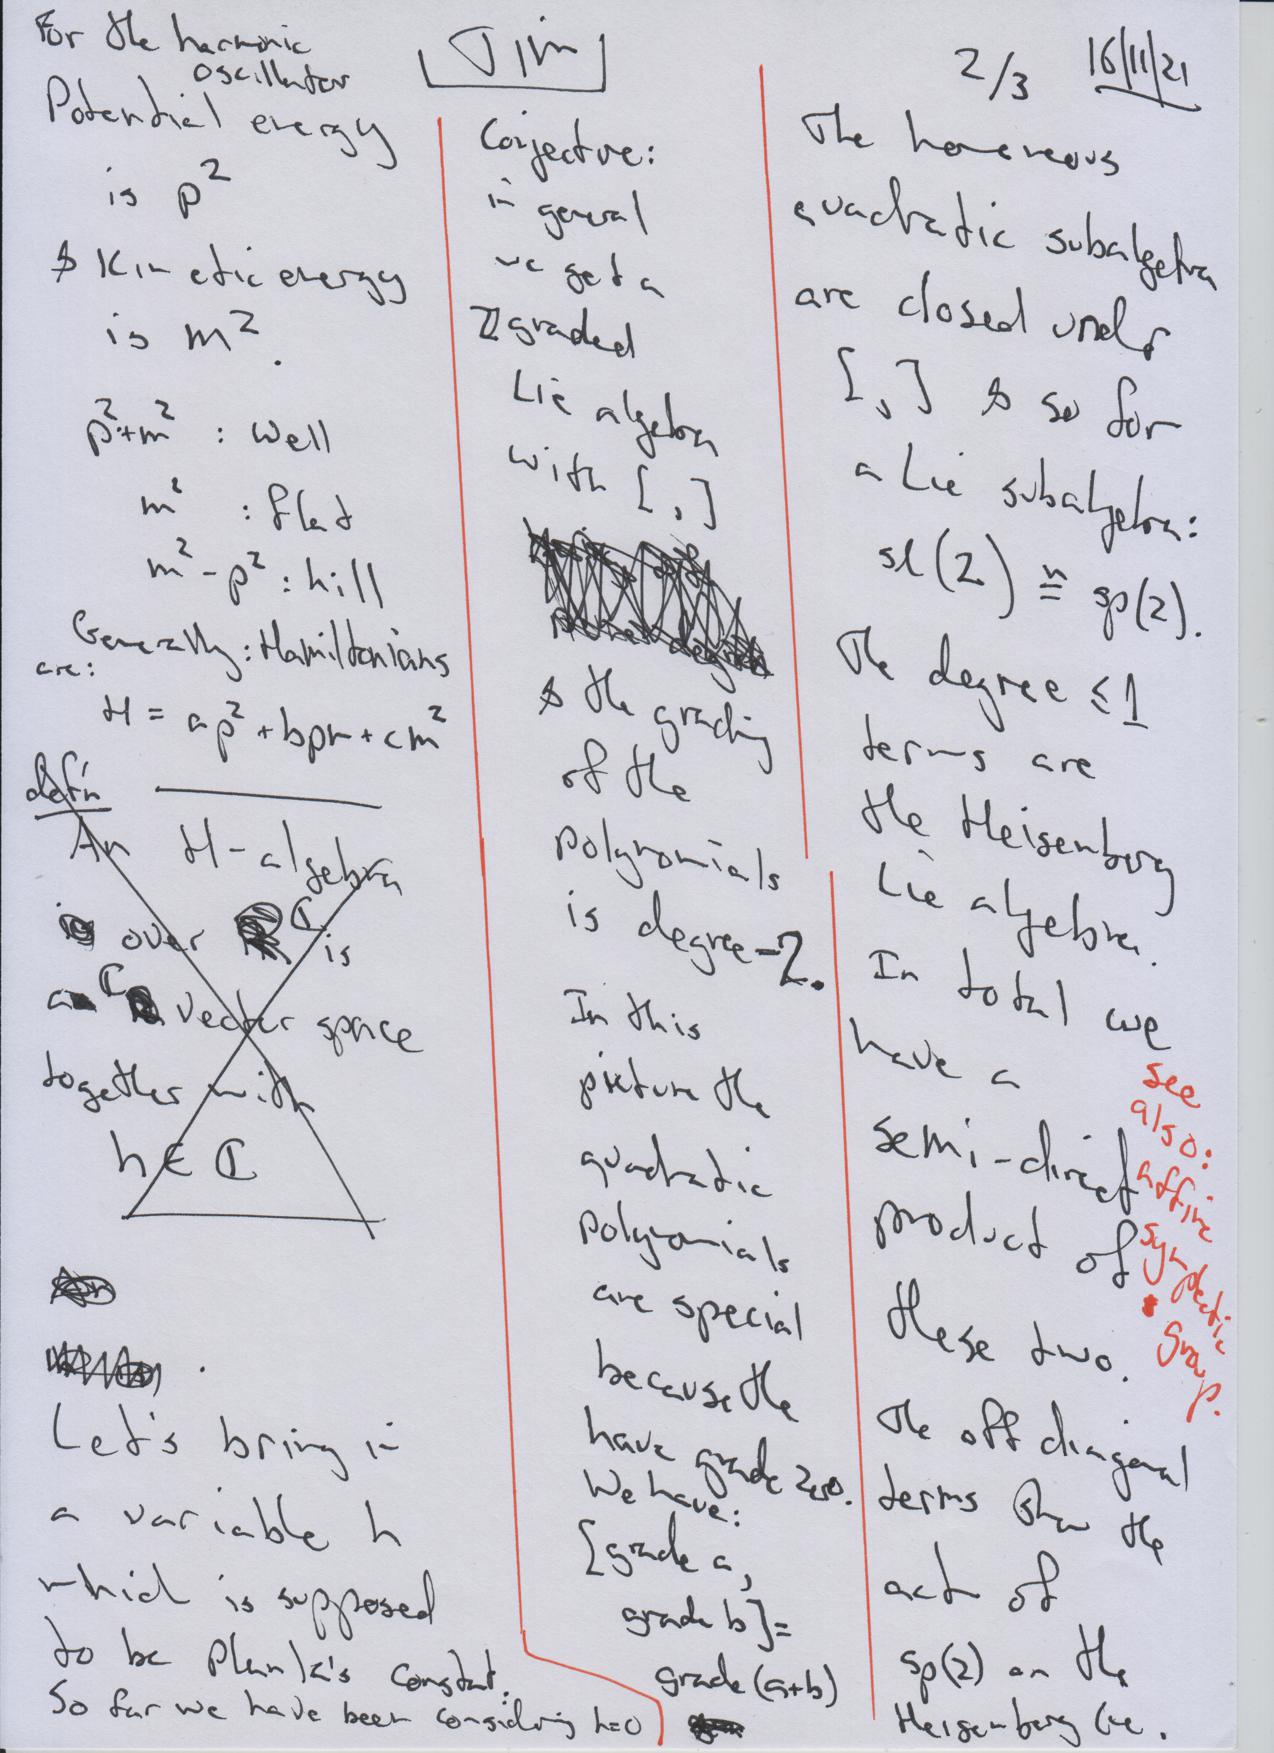 Jim
2/3
16/11/21
For the harmonic
oscillator
Potential energy
is p²
& Kinetic energy
is m².
p²+m² : Well
m² : flat
m² - p² : hill
Generally: Hamiltonians
are:
H = ap² + bpm + cm²
defn
An H-algebra
over ℂ is
a ℂ vector space
together with
h ∈ ℂ
Let's bring in
a variable h
which is supposed
to be Plank's constant.
So far we have been considering h=0
Conjecture:
in general
we get a
ℤ graded
Lie algebra
with [,]
& the grading
of the
polynomials
is degree-2.
In this
picture the
quadratic
polynomials
are special
because the
have grade zero.
We have:
[grade a,
grade b]=
grade (a+b)
The homeneous
quadratic subalgebra
are closed under
[,] & so for
a Lie subalgebra:
sl(2) ≅ sp(2).
The degree ≤1
terms are
the Heisenberg
Lie algebra.
In total we
have a
semi-direct
product of
these two.
see
also:
affine
symplectic
group.
The off diagonal
terms show the
act of
sp(2) on the
Heisenberg Lie.